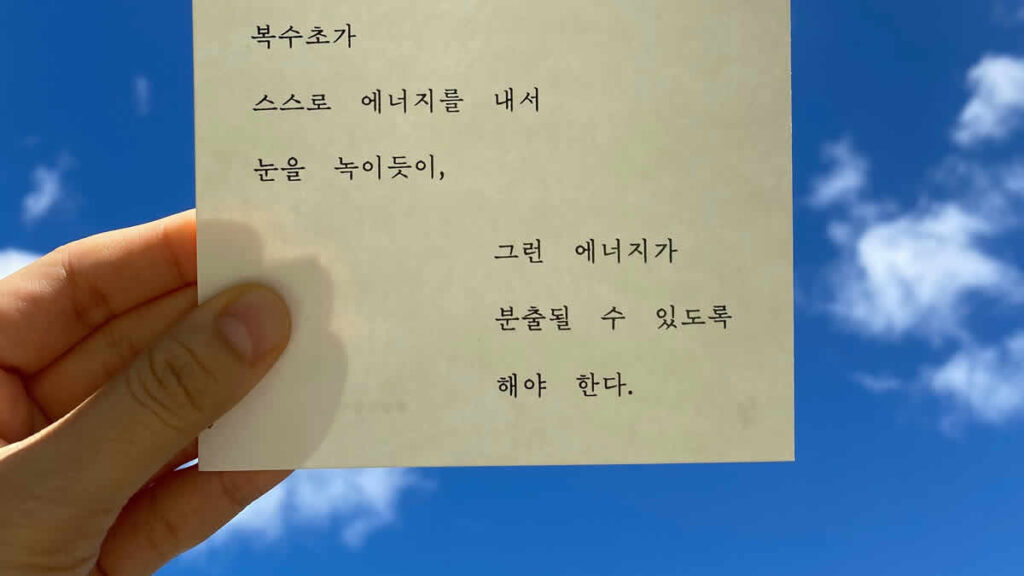 복수초가
스스로 에너지를 내서
눈을 녹이듯이,
그런 에너지가
분출될 수 있도록
해야 한다.